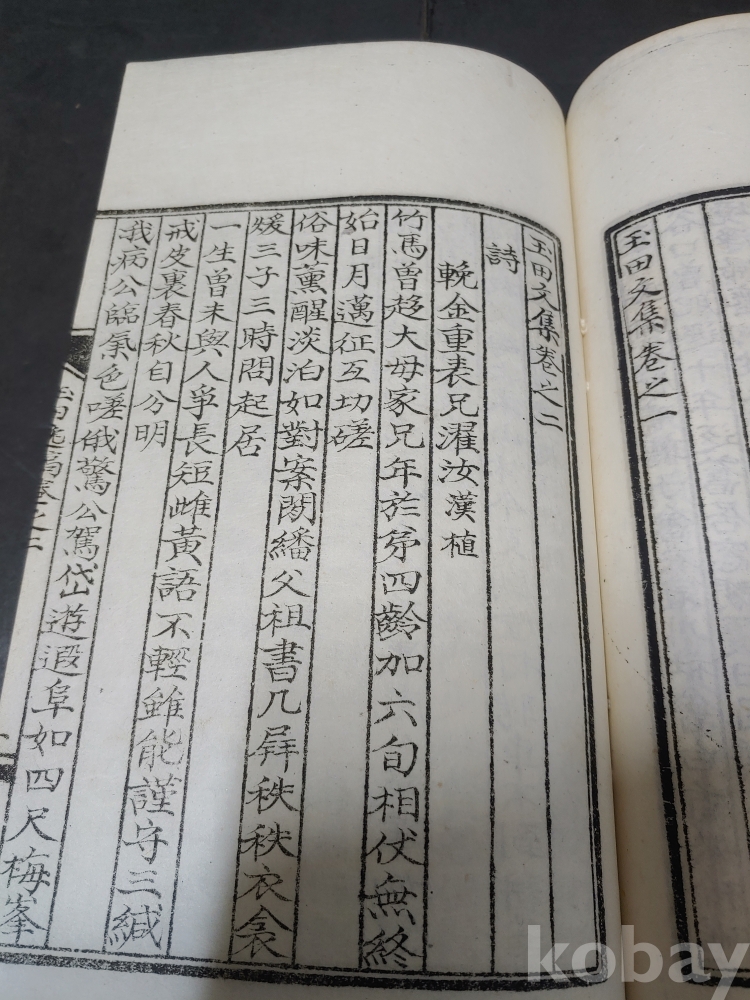 玉田文集卷之一
玉田文集卷之二
詩
輓金重表兄濯汝漢植
竹馬曾趍大母家兄年於弟四齡加六旬相伏無終
始日月邁征互切磋
俗味薰醒淡泊如對案閱繙父祖書几屛秩秩衣衾
煖三子三時問起居
一生曾未與人爭長短雌黃語不輕雖能謹守三緘
戒皮裏春秋自分明
我病公臨氣色嗟俄驚公駕岱遊遐阜如四尺梅峯
kobay